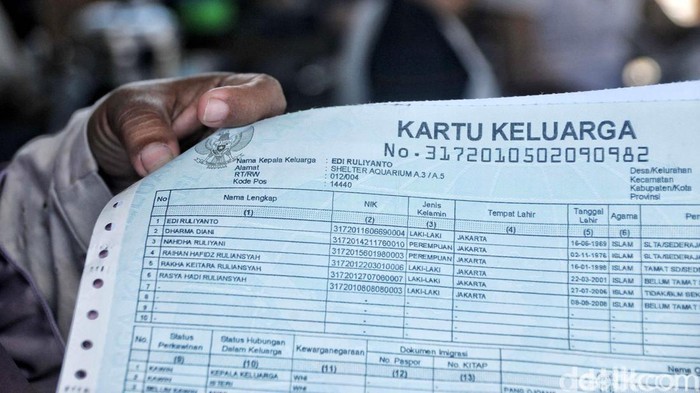 KARTU KELUARGA
No. 3172010502090982
Nama Kepala Keluarga : EDI RULIYANTO
Alamat : SHELTER AQUARIUM A.3 / A.5
RT/RW : 012/004
Kode Pos : 14440
Desa/Kelurahan
Kecamatan
Kabupaten/Kota
Provinsi
No Nama Lengkap NIK Jenis Kelamin Tempat Lahir Tanggal Lahir Agama
(1) (2) (3) (4) (5) (6)
1 EDI RULIYANTO 3172011606690004 LAKI-LAKI JAKARTA ISLAM SLTA/SEDERAJA
2 DHARMA DIANI 3172014211760010 PEREMPUAN JAKARTA ISLAM
3 NAHDHA RULIYANI 3172015601980003 PEREMPUAN JAKARTA ISLAM
4 RAIHAN HAFIDZ RULIANSYAH 3172012203010006 LAKI-LAKI JAKARTA 22-03-2001 ISLAM BELUM TAMAT
5 RAKHA KEITARA RULIANSYAH 3172012707060007 LAKI-LAKI JAKARTA 27-07-2006 ISLAM
6 RASYA HADI RULIANSYAH 3172010808080003 LAKI-LAKI JAKARTA 08-08-2008 ISLAM BELUM TAMAT
7
8
9
10
No. Status Perkawinan Status Hubungan Dalam Keluarga Kewarganegaraan Dokumen Imigrasi
No. Paspor No. KITAP
(9) (10) (11) (12) (13)
1 KAWIN KEPALA KELUARGA WNI
2 KAWIN ISTERI WNI
detikcom